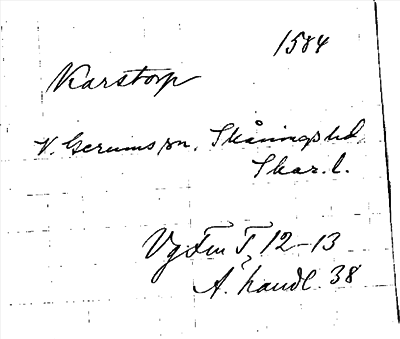 1584
Karstorp
V. Gerums sn, Skånings hd,
Skar. l.
Vg Fm T, 12-13
A. handl. 38